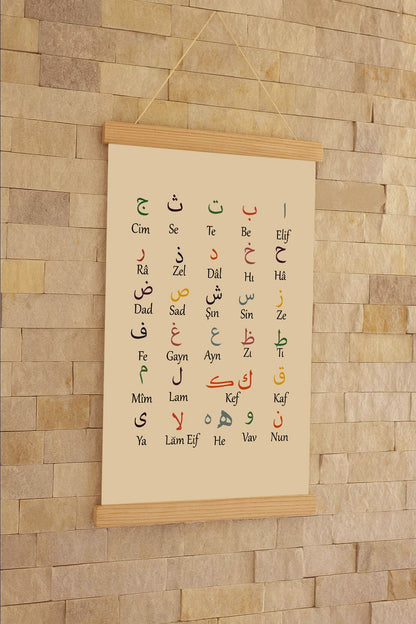 ا ب ت ث ج
Cim Se Te Be Elif
ح خ د ذ ر
Râ Zel Dâl Hı Hâ
ز س ش ص ض
Dad Sad Şın Sin Ze
ط ظ ع غ ف
Fe Gayn Ayn Zı Tı
ق ك کـ ل م
Mîm Lam Kef Kaf
ن و ـهـ ه لا ى
Ya Lâm Eif He Vav Nun